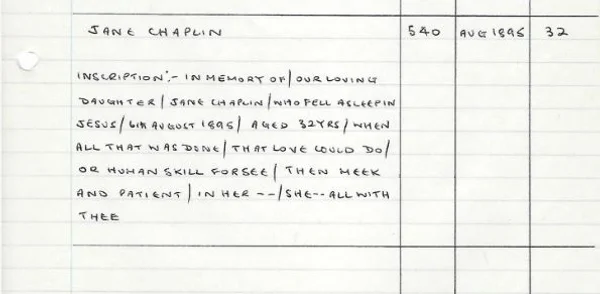 JANE CHAPLIN 540 AUG 1895 32
INSCRIPTION:- IN MEMORY OF / OUR LOVING
DAUGHTER / JANE CHAPLIN / WHO FELL ASLEEP IN
JESUS / 6TH AUGUST 1895 / AGED 32YRS / WHEN
ALL THAT WAS DONE / THAT LOVE COULD DO /
OR HUMAN SKILL FORSEE / THEN MEEK
AND PATIENT / IN HER -- / SHE -- ALL WITH
THEE